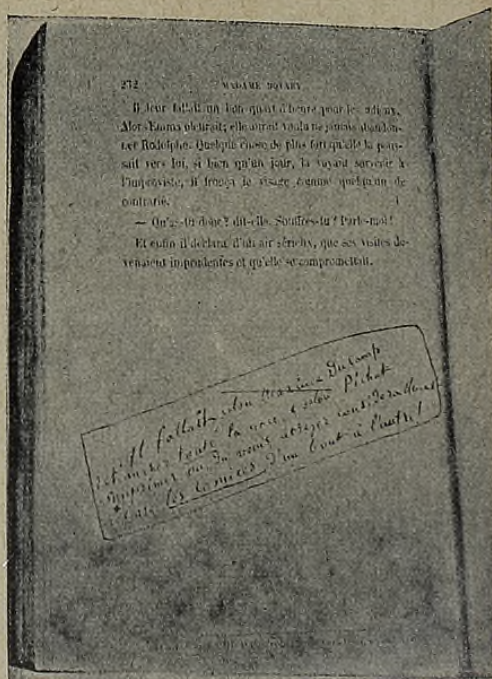 272 MADAME BOVARY
Il leur fallait un bon quart d'heure pour les adieux.
Alors Emma pleurait; elle aurait voulu ne jamais abandon-
ner Rodolphe. Quelque chose de plus fort qu'elle la pous-
sait vers lui, si bien qu'un jour, la voyant survenir à
l'improviste, il fronça le visage comme quelqu'un de
contrarié.
— Qu'as-tu donc? dit-elle. Souffres-tu? Parle-moi!
Et enfin il déclara, d'un air sérieux, que ses visites de-
venaient imprudentes et qu'elle se compromettait.
Il fallait, selon Maxime Ducamp
retrancher toute la noce, & selon Pichat
supprimer, ou du moins abréger considérablement,
les Comices, d'un bout à l'autre!